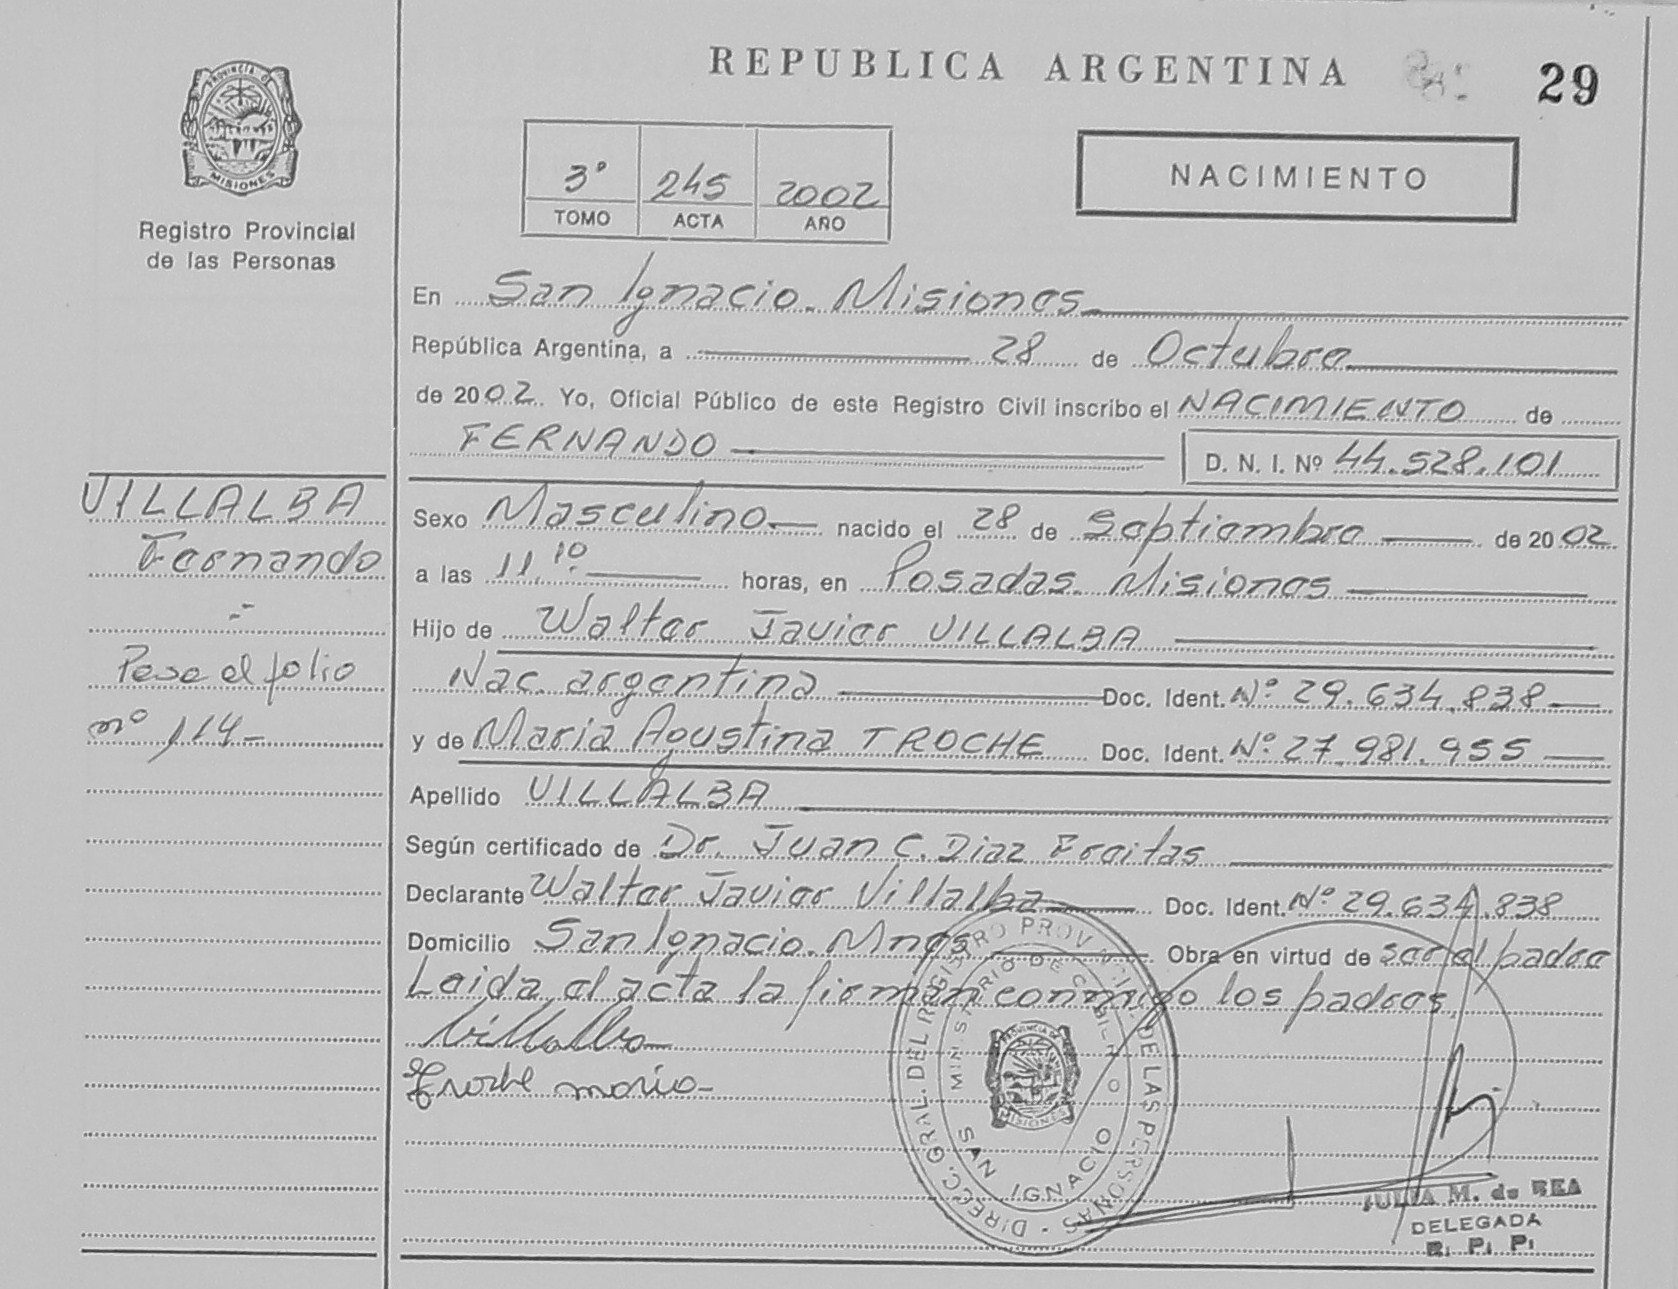 REPUBLICA ARGENTINA
29
PROVINCIA DE
MISIONES
Registro Provincial
de las Personas
3° 245 2002
TOMO ACTA AÑO
NACIMIENTO
En San Ignacio. Misiones
República Argentina, a 28 de Octubre
de 2002. Yo, Oficial Público de este Registro Civil inscribo el NACIMIENTO de
FERNANDO D. N. I. Nº 44.528.101
VILLALBA
Fernando
Pasa al folio
nº 114-
Sexo Masculino nacido el 28 de Septiembre de 2002
a las 11.10 horas, en Posadas. Misiones
Hijo de Walter Javier VILLALBA
Nac. argentina Doc. Ident. Nº 29.634.838
y de Maria Agustina TROCHE Doc. Ident. Nº 27.981.955
Apellido VILLALBA
Según certificado de Dr. Juan C. Diaz Freitas
Declarante Walter Javier Villalba Doc. Ident. Nº 29.634.838
Domicilio San Ignacio. Mnes Obra en virtud de ser el padre
Leida el acta la firman conmigo los padres,
Villalba
Troche Maria
DIREC. GRAL. DEL REGISTRO PROVINCIAL DE LAS PERSONAS
MINISTERIO DE GOBIERNO
PROVINCIA DE
MISIONES
SAN IGNACIO
JULIA M. de REA
DELEGADA
R. P. P.